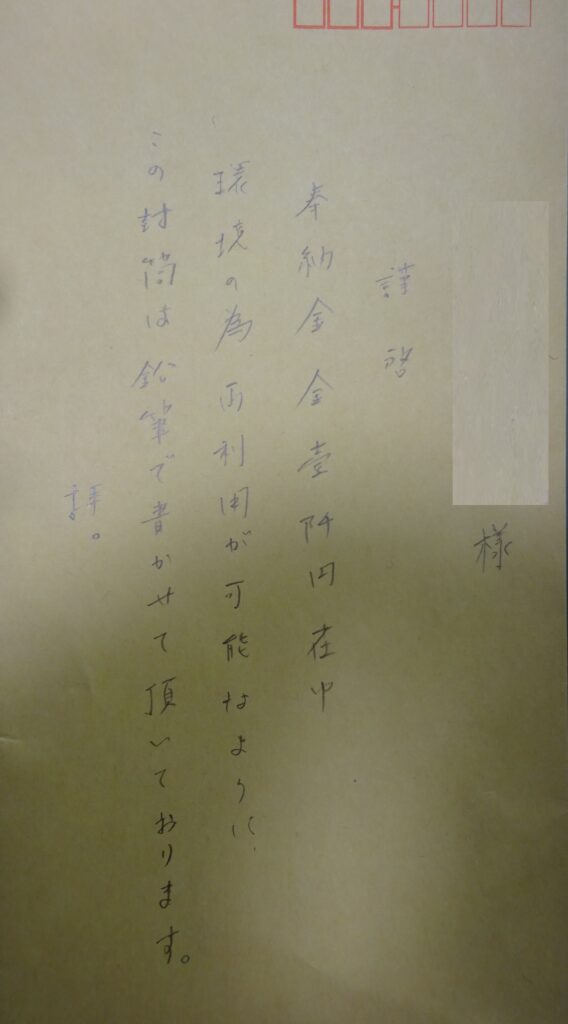 様
謹啓
奉納金金壱阡円在中
環境の為再利用が可能なように
この封筒は鉛筆で書かせて頂いております。
謹。